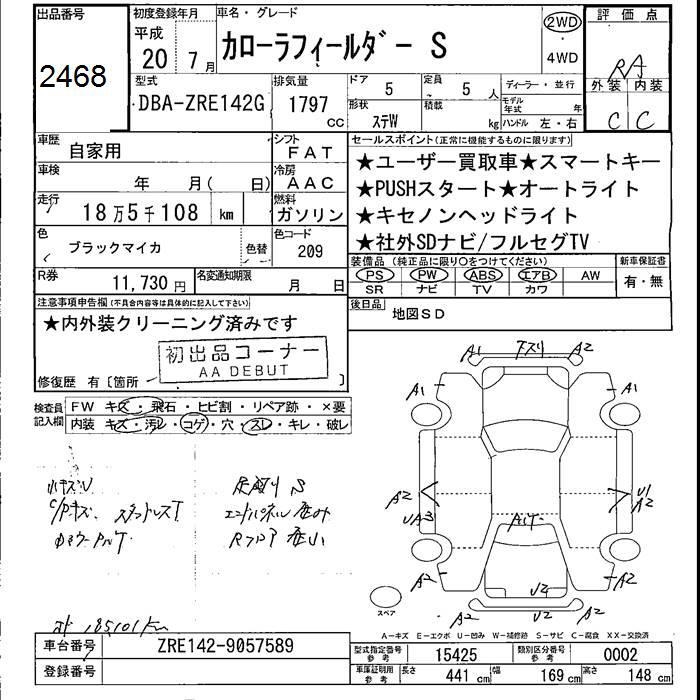 出品番号
2468
初度登録年月
平成
20 7月
車名・グレード
カローラフィールダー S
2WD
・
4WD
評価点
RA
外装 内装
C C
型式
DBA-ZRE142G
排気量
1797
CC
ドア
5
定員
5 人
形状
ステW
積載
kg
ディーラー・並行
モデル年式 年
ハンドル 左・右
車歴
自家用
シフト
FAT
車検
年 月( 日)
冷房
AAC
走行
18万5千108 km
燃料
ガソリン
色
ブラックマイカ
色替
色コード
209
R券
11,730円
名変通知期限
月 日
セールスポイント(正常に機能するものに限ります)
★ユーザー買取車★スマートキー
★PUSHスタート★オートライト
★キセノンヘッドライト
★社外SDナビ/フルセグTV
装備品 (純正品に限り〇をつけてください)
PS PW ABS エアB AW
SR ナビ TV カワ
新車保証書
有・無
後日品
地図SD
注意事項申告欄(不具合内容等は具体的に記入して下さい)
★内外装クリーニング済みです
初出品コーナー
AA DEBUT
修復歴 有〔箇所 〕
検査員
記入欄
FW キズ・飛石・ヒビ割・リペア跡・×要
内装 キズ・汚レ・コゲ・穴・スレ・キレ・破レ
A1 下スリ A2
A1 A1
A2 U1
A2
UA3
A1T
A2 U2 A2
A2 U2 A2
スペア
小キズU 足廻りS
C/Pキズ
エンドパネル歪み
Rフロア歪小
185101km
A－キズ E－エクボ U－凹み W－補修跡 S－サビ C－腐食 XX－交換済
車台番号
ZRE142-9057589
登録番号
型式指定番号
参考
15425
類別区分番号
参考
0002
車庫証明用
参考
長さ
441 cm
幅
169 cm
高さ
148 cm